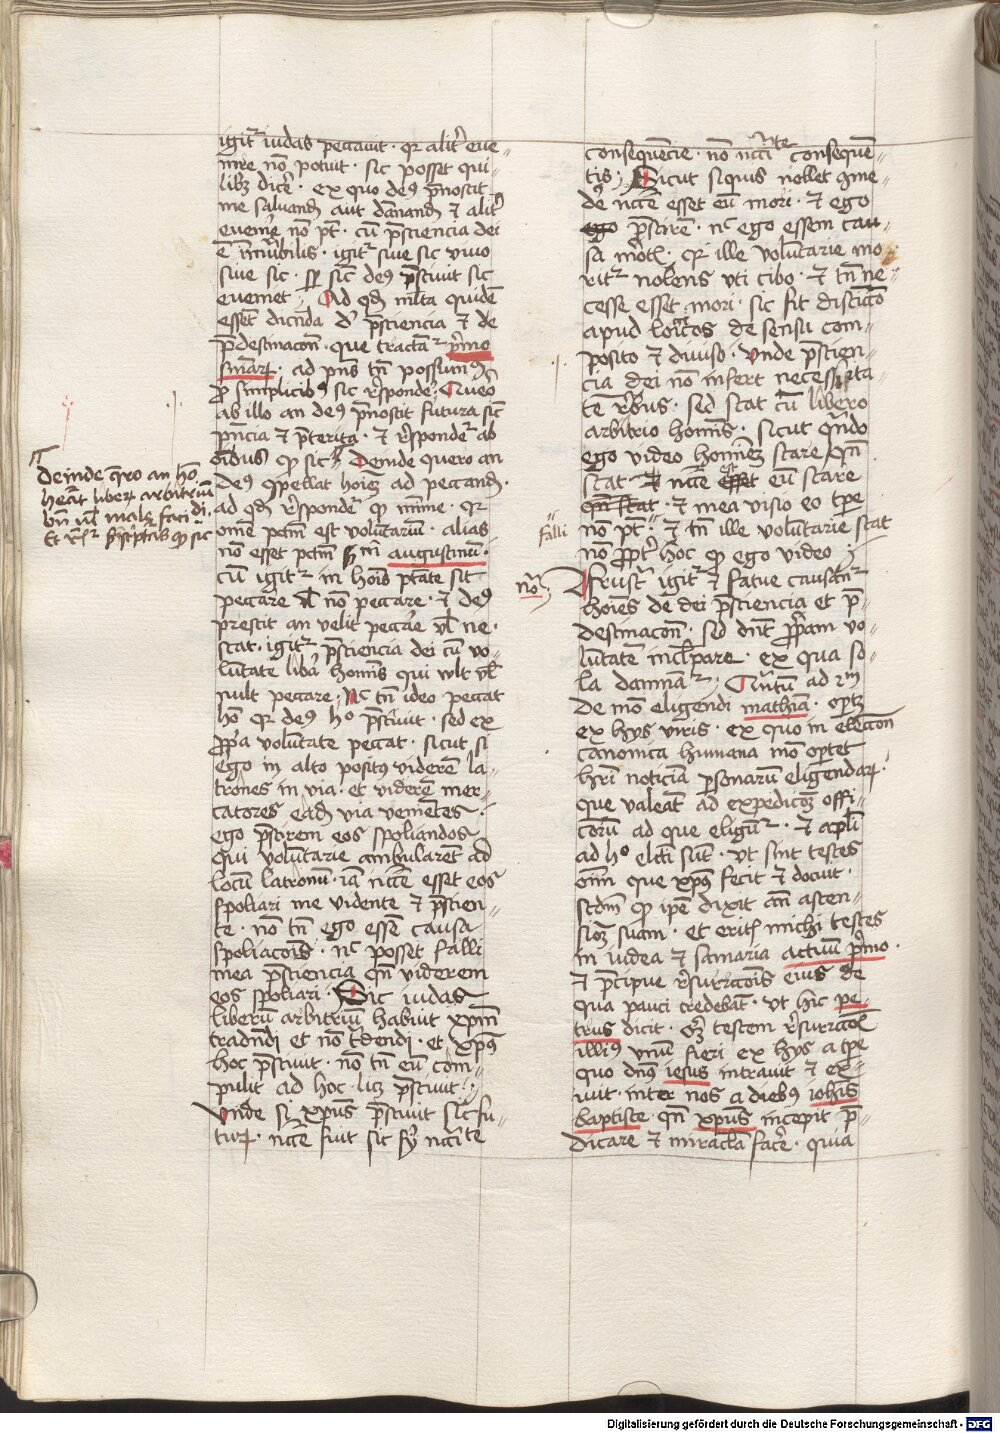 igitur iudas peccauit · qr alitr eue-
nire nõ potuit · sic posset qui-
libz dicere · ex quo deus pnoscit
me saluand aut dãnand et alitr
euenire nõ pt · cũ psciencia dei
ē īmutbilis · igitr siue sic viuo
siue sic · sp sic deus psciuit sic
eueniet · Ad qd mlta quidē
essent dicenda d' psciencia et de
pdestinacon · que tractãtr primo
sniãrum · ad pns tn possumus
pro simplicibus sic respondere · Quero
ab illo an deus pnoscit futura sic
pncia et pterita · et respondetr ab
omibus qp sic · Deinde quero an
deus compellat hoiez ad peccand ·
ad qd respondetr qp minime · qr
omē pctm est voluntariũ · alias
nõ esset pctm scdm augustinum ·
cũ igitr in hois ptate sit
peccare vl nõ peccare · et deus
prescit an velit peccare vl ne ·
stat · igitr psciencia dei cũ vo-
luntate libera hominis qui vult vl
nult peccare · Nc tn ideo peccat
hõ qr deus ho psciuit · sed ex
propria voluntate peccat · sicut si
ego in alto positus viderē la-
trones in via · et viderē mer-
catores eadē via venientes ·
ego pscirem eos spoliandos
qui voluntarie ambularēt ad
locũ latronum · iã nccē esset eos
spoliari me vidente et pscien-
te · nõ tn ego essē causa
spoliacois · nc posset falli
mea psciencia qn viderem
eos spoliari · Sic iudas
liberũ arbitriũ habuit xpm
tradendi et nõ tradendi · et xpus
hoc psciuit · nõ tn eũ com-
pulit ad hoc · licz psciuit ·
Vnde si xpus pscíuit sic fu-
turum · nccē fuit sic sz nccitate
deinde qro an hõ
heat liberum arbitriũ
bn vl malum faciendi
Et respondetr sic
consequencie · nõ nccitate consequen-
tis · Sicut siquis nollet come-
dere nccē esset eũ mori · et ego
ego pscirē · nc ego essem cau-
sa mortis · qr ille voluntarie mo-
ritr nolens vti cibo · et tn ne-
cesse esset mori · sic fit distinctio
apud loycos de sensu com-
posito et diuiso · vnde pscien-
cia dei nõ infert necessita-
tē rebus · sed stat cũ libero
arbitrio hominis · sicut quando
ego video hominez stare qn
stat nccē est eũ stare
qn stat · et mea visio eo tpre
falli
nõ pt · et tn ille voluntarie stat
nõ propter hoc qp ego video ·
no
Frustra igitr et fatue causantur
hoies de dei psciencia et p-
destinacon · sed dnt propriam vo-
luntatē inculpare · ex qua so-
la damnãtr · Quantum ad 2m
de mõ eligendi mathiã · oportz
ex hys viris · ex quo in electon
canonica humana mõ oportet
heri noticiã personarũ eligendarum ·
que valeãt ad expedicoz offi-
ciorũ ad que eligũtr · et apli
ad ho electi sunt · vt sint testes
oim que xpus fecit et docuit ·
scdm qp ipe dixit ãn ascen-
sioz suam · et eritis michi testes
in iudea et samaria actuum primo ·
et precipue resurrectois eius de
qua pauci credebãt · vt hic pe-
trus dicit · oportz testem resurrectois
illius vnum fieri ex hys a tpre
quo dnus iesus intrauit et ex-
iuit · inter nos a diebus iohis
baptiste · qn xpus incepit p-
dicare et miracula facere · quia
Digitalisierung gefördert durch die Deutsche Forschungsgemeinschaft - DFG